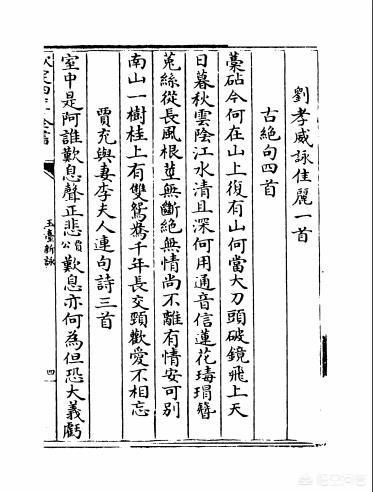 劉孝威詠佳麗一首
古絶句四首
藁砧今何在山上復有山何當大刀頭破鏡飛上天
日暮秋雲陰江水清且深何用通音信蓮花瑇瑁簪
菟絲從長風根莖無斷絶無情尚不離有情安可别
南山一樹桂上有雙鴛鴦千年長交頸歡愛不相忘
賈充與妻李夫人連句詩三首
室中是阿誰歎息聲正悲賈公歎息亦何為但恐大義虧
欽定四庫全書
玉臺新詠
四
悟空问答